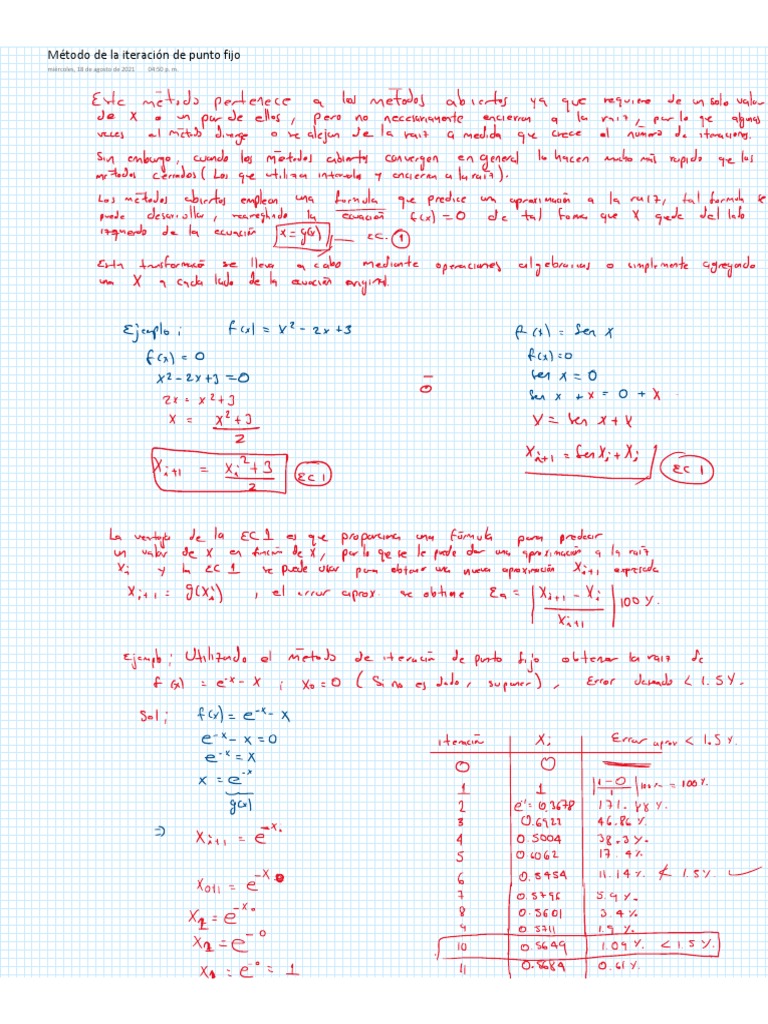 Método de la iteración de punto fijo
miércoles, 18 de agosto de 2021 04:50 p. m.
Este método pertenece a los metodos abiertos ya que requiere de un solo valor
de X o un par de ellos, pero no necesariamente encierran a la raiz, por lo que algunas
veces el método diverge o se alejan de la raiz a medida que crece el numero de iteraciones.
Sin embargo, cuando los métodos abiertos convergen en general lo hacen mucho más rapido que los
métodos cerrados (Los que utilizan intervalo y encierran a la raiz).
Los métodos abiertos emplean una fórmula que predice una aproximación a la raiz, tal formula se
puede desarrollar, rearreglando la ecuación f(x) = 0 de tal forma que X quede del lado
izquierdo de la ecuación x = g(x) — EC. 1
Esta transformació se lleva a cabo mediante operaciones algebraicas o simplemente agregando
una X a cada lado de la ecuación original.
Ejemplo: f(x) = x² - 2x + 3
f(x) = 0
x² - 2x + 3 = 0
2x = x² + 3
x = x² + 3 / 2
Xi+1 = Xi² + 3 / 2 EC 1
f(x) = Sen x
f(x) = 0
Sen x = 0
Sen x + x = 0 + x
X = Sen x + x
Xi+1 = Sen Xi + Xi EC 1
La ventaja de la EC 1 es que proporciona una fórmula para predecir
un valor de X en función de X, por lo que se le puede dar una aproximación a la raiz
Xi y la EC 1 se puede usar para obtener una nueva aproximación Xi+1 expresada
Xi+1 = g(Xi), el error aprox. se obtiene Ea = |Xi+1 - Xi / Xi+1| 100 %.
Ejemplo: Utilizando el método de iteración de punto fijo obtener la raiz de
f(x) = e^-x - x ; X0 = 0 (Si no es dado, suponer), Error deseado < 1.5 %.
Sol: f(x) = e^-x - x
e^-x - x = 0
e^-x = x
x = e^-x
g(x)
=> Xi+1 = e^-x
X0+1 = e^-x0
X1 = e^-x0
X1 = e^-0
X1 = e^0 = 1
iteración Xi Error aprox < 1.5 %.
0 0
1 1 |1-0 / 1| 100% = 100 %
2 e^-1 = 0.3678 171.88 %
3 0.6922 46.86 %
4 0.5004 38.3 %
5 0.6062 17.4 %
6 0.5454 11.14 % ≮ 1.5 %
7 0.5796 5.9 %
8 0.5601 3.4 %
9 0.5711 1.9 %
10 0.5649 1.09 % < 1.5 %
11 0.5684 0.61 %